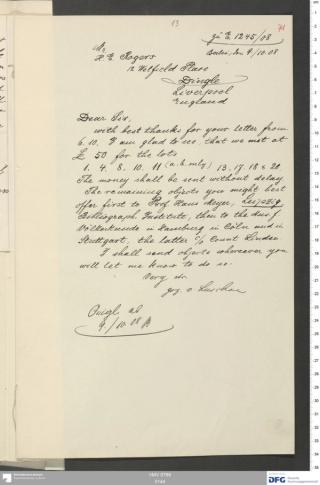 13
71
zu E 1245/08
Berlin, den 9/10.08
Mr
H. E. Rogers
12 Welfield Place
Dingle
Liverpool
England
Dear Sir,
with best thanks for your letter from
6.10. I am glad to see, that we met at
£ 50 for the lots
1. 4. 8. 10. 11 (a. b. only) 13. 17. 18 & 21
The money shall be sent without delay.
The remaining objects you might best
offer first to Prof. Hans Meyer, Leipzig,
Bibliograph. Institute, then to the Mus. f.
Völkerkunde in Hamburg in Cöln and in
Stuttgart, the latter c/o Count Linden.
I shall send objects wherever you
will let me know to do so.
Very str.
gez. v. Luschan
ab
9/10.08
DFG